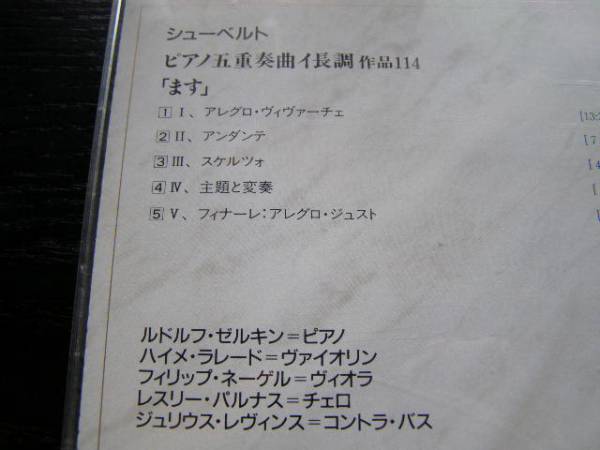 シューベルト
ピアノ五重奏曲イ長調 作品114
「ます」
1 I、アレグロ・ヴィヴァーチェ [13:
2 II、アンダンテ [7
3 III、スケルツォ [4
4 IV、主題と変奏 [
5 V、フィナーレ:アレグロ・ジュスト [
ルドルフ・ゼルキン=ピアノ
ハイメ・ラレード=ヴァイオリン
フィリップ・ネーゲル=ヴィオラ
レスリー・パルナス=チェロ
ジュリウス・レヴィンス=コントラ・バス